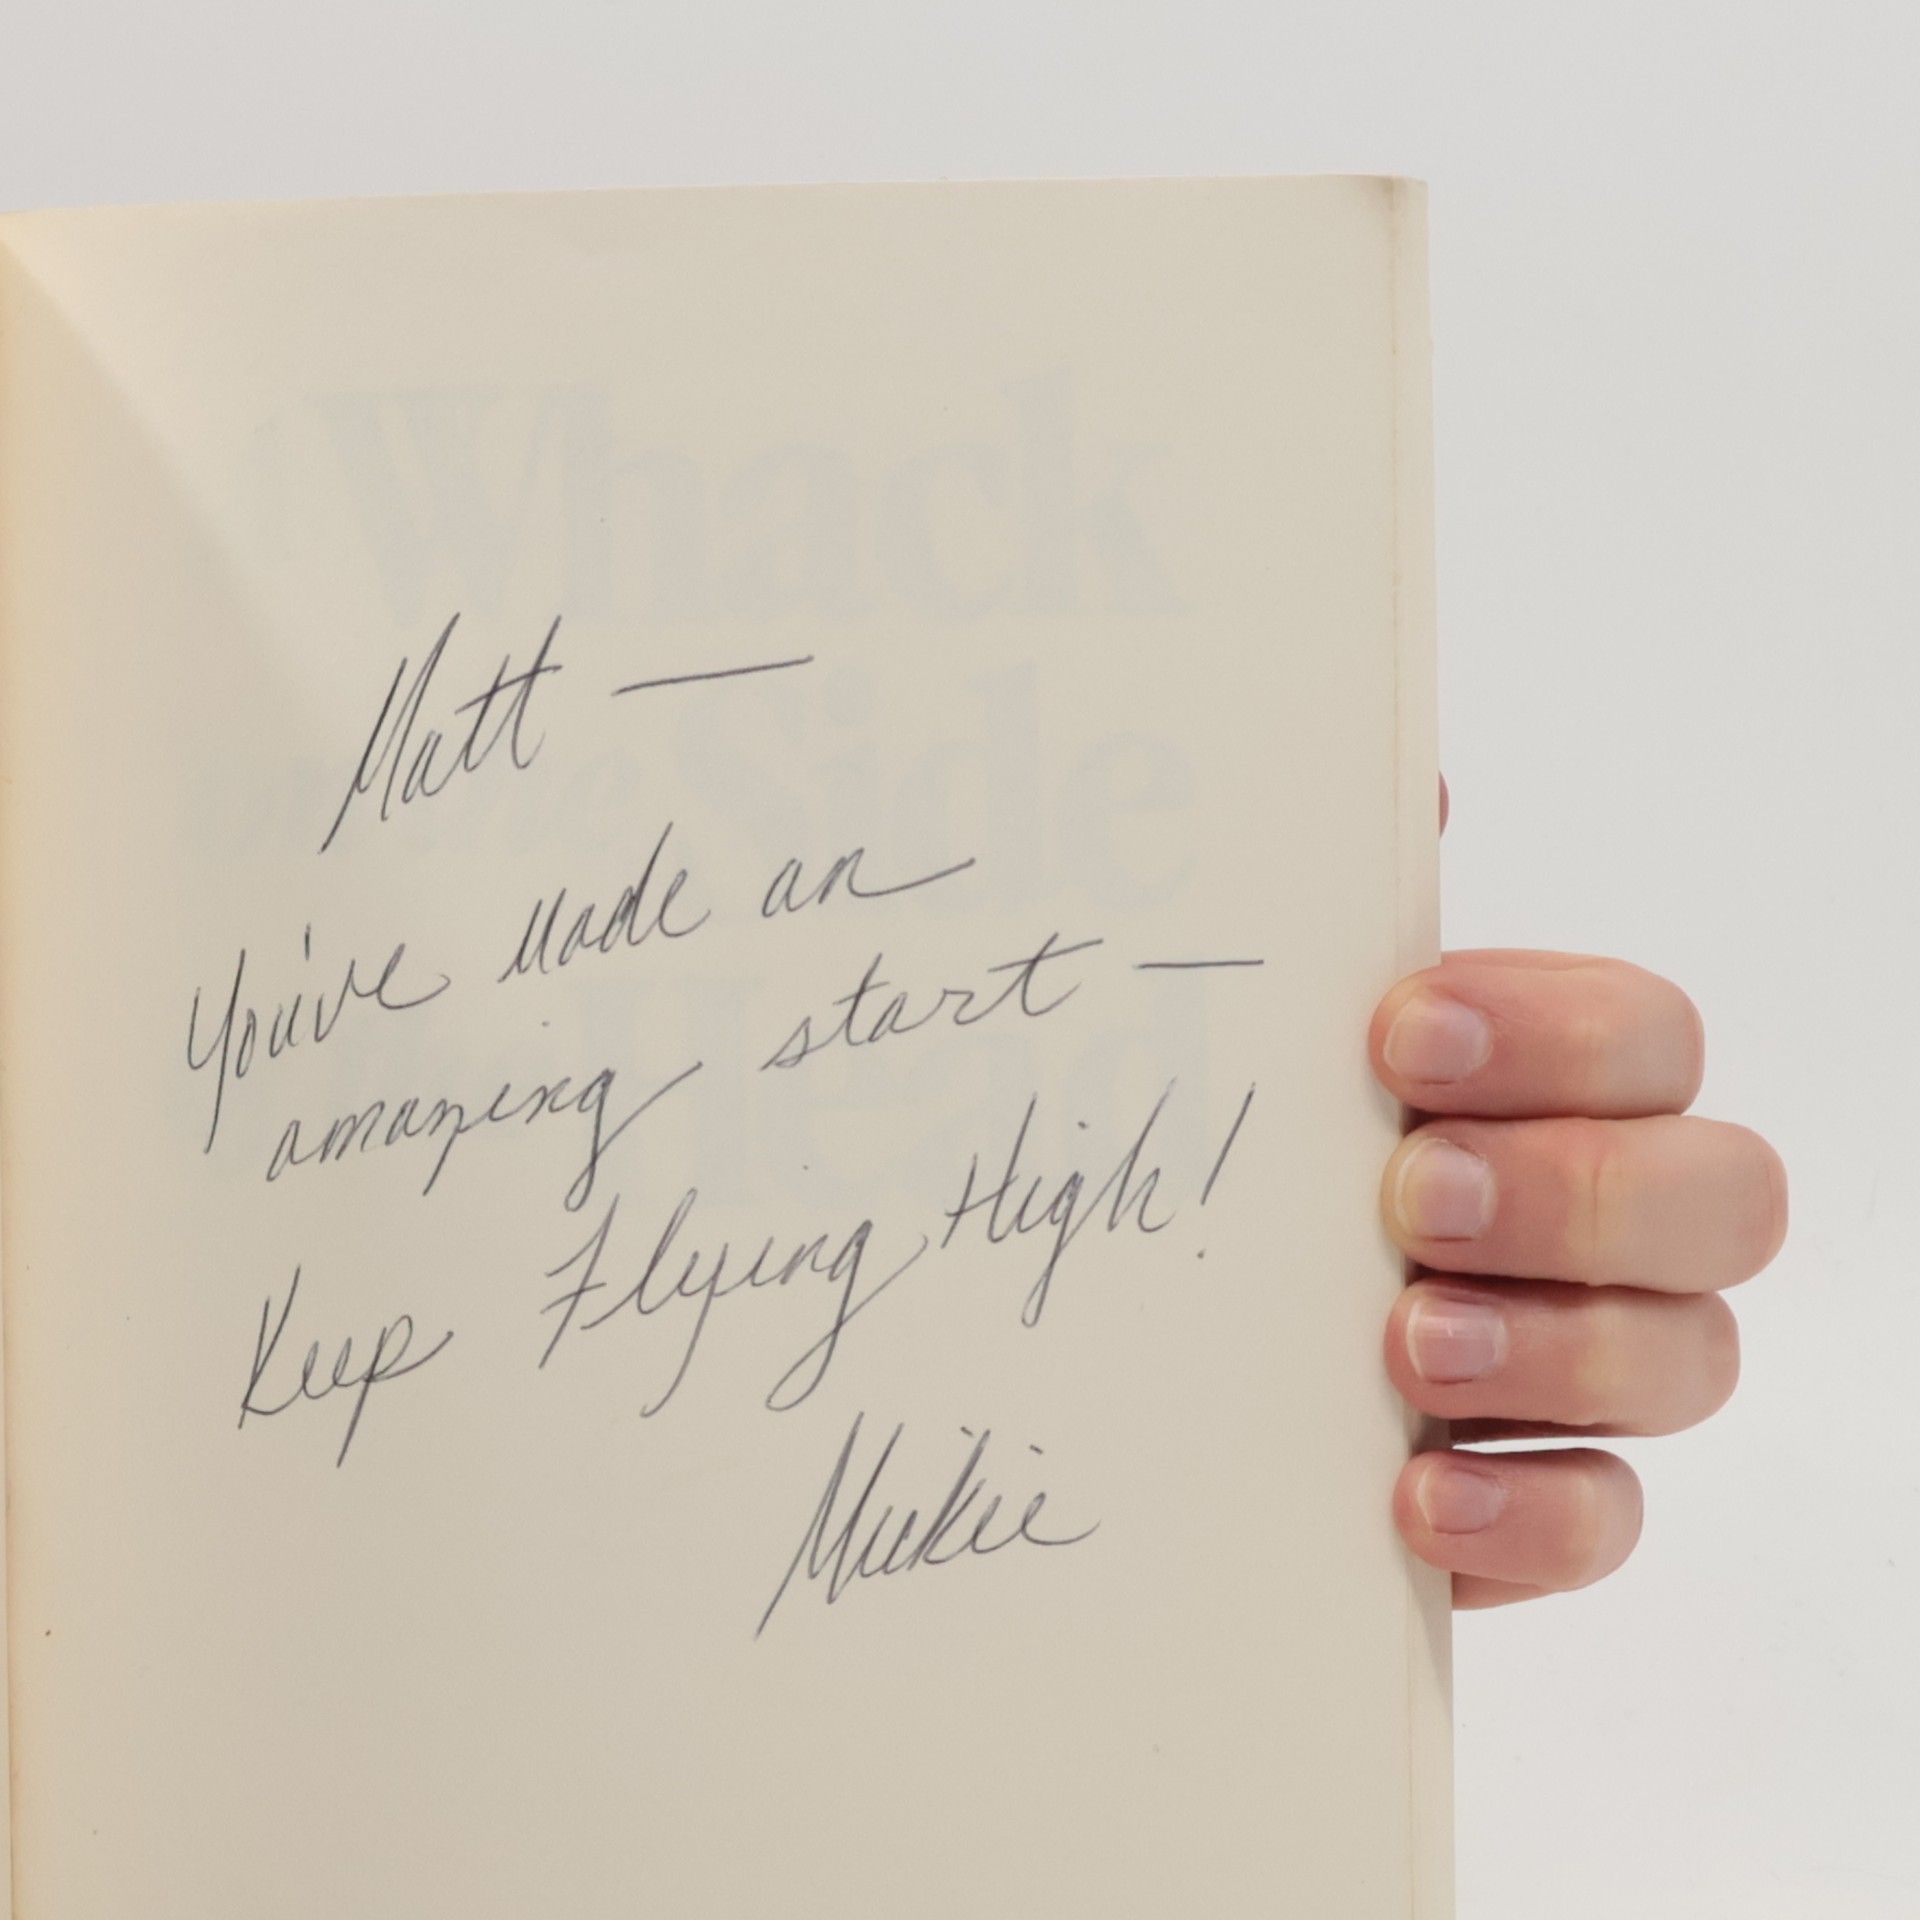 Whack
Side
Matt —
You've made an
amazing start —
Keep Flying High!
Mickie